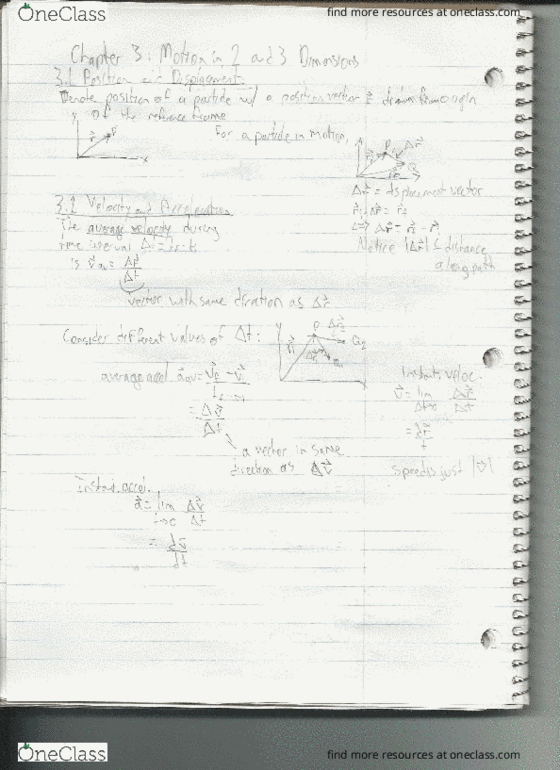 OneClass
find more resources at oneclass.com
Chapter 3: Motion in 2 and 3 Dimensions
3.1 Position and Displacement
Denote position of a particle w/ a position vector r⃗ drawn from origin
of the reference frame
For a particle in motion,
Δr⃗ = displacement vector
r⃗₁ + Δr⃗ = r⃗₂
<=> Δr⃗ = r⃗₂ - r⃗₁
Notice |Δr⃗| ≤ distance
along path
3.2 Velocity and Acceleration
The average velocity during
time interval Δt = t₂ - t₁
is v⃗av = Δr⃗/Δt
vector with same direction as Δr⃗
Consider different values of Δt:
average accel. a⃗av = v⃗₂ - v⃗₁ / t₂ - t₁
= Δv⃗/Δt
a vector in same
direction as Δv⃗
veloc.
v⃗ = lim Δr⃗/Δt
Δt→0
speed is just |v⃗|
instant. accel.
a⃗ = lim Δv⃗/Δt
= dv⃗/dt
OneClass
find more resources at oneclass.com